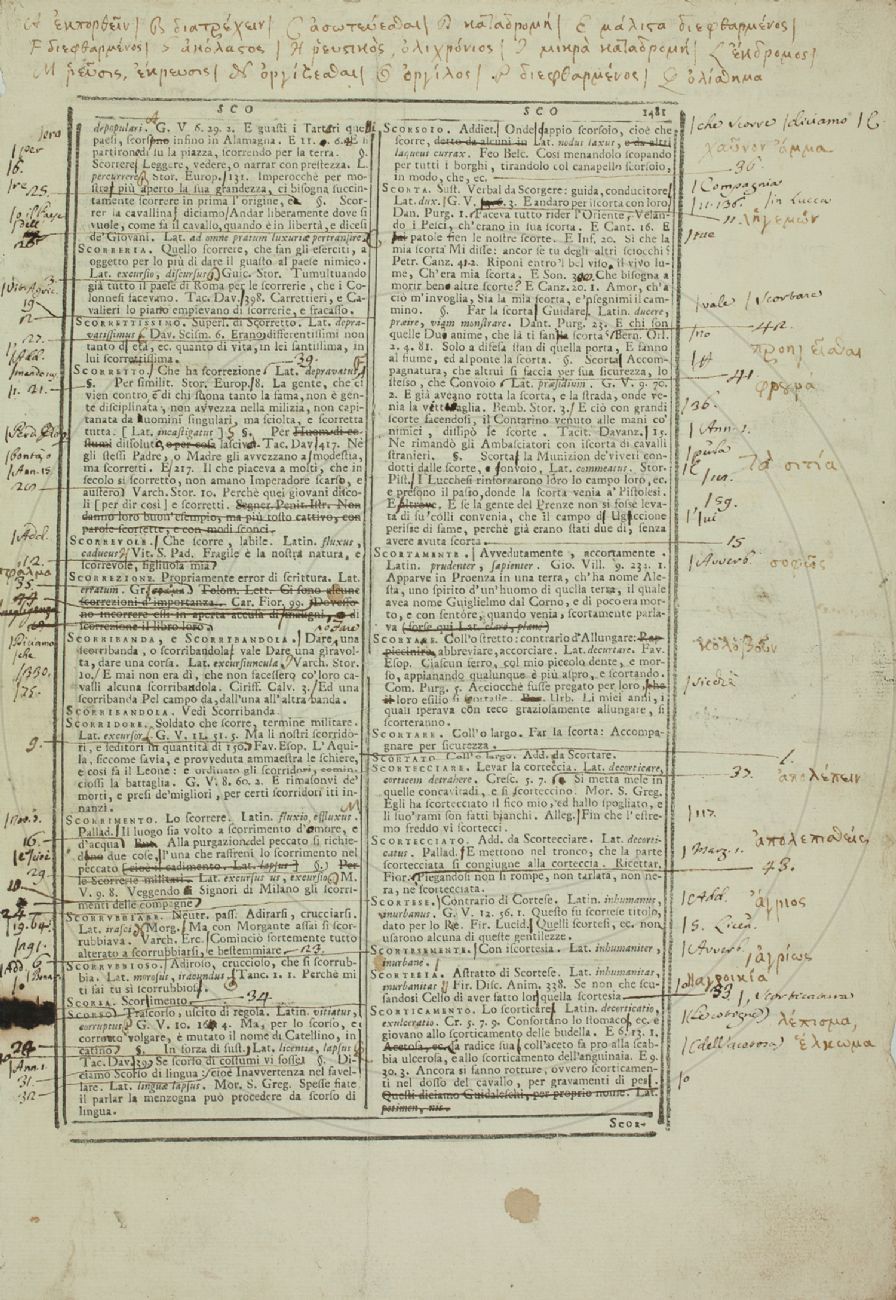 A ἐκπορθεῖν | B διατρέχειν | C ἀσωτεύεσθαι | D καταδρομή | E μάλιστα διεφθαρμένος |
F διεφθαρμένος | G ἀκόλαστος | H ῥευστικός, ὀλιχρόνιος | I μικρὰ καταδρομή | L ἔκδρομος |
M ῥεῦσις, ἔκρευσις | N ὀργίζεσθαι | O ὀργίλος | P διεφθαρμένος | Q ὀλίσθημα
SCO SCO 1481
depopulari. G. V. 6. 29. 2. E guasti i Tartari quelli
paesi, scorsono infino in Alamagna. E 11. 6. 4. E
partironsi di su la piazza, scorrendo per la terra. §.
Scorrere Leggere, vedere, o narrar con prestezza. L.
percurrere. Stor. Europ. 131. Imperocchè per mo-
strar più aperto la sua grandezza, ci bisogna succin-
tamente scorrere in prima l'origine, ec. §. Scor-
rer la cavallina diciamo Andar liberamente dove si
vuole, come fa il cavallo, quando è in libertà, e dicesi
de' Giovani. Lat. ad omne pratum luxuriæ pertransire.
SCORRERIA. Quello scorrere, che fan gli eserciti,
oggetto per lo più di dare il guasto al paese nimico.
Lat. excursio, discursus. Guic. Stor. Tumultuando
già tutto il paese di Roma per le scorrerie, che i Co-
lonnesi facevano. Tac. Dav. 398. Carrettieri, e Ca-
valieri lo piano empievano di scorrerie, e fracasso.
SCORRETTISSIMO. Superl. di Scorretto. Lat. depra-
vatissimus. Dav. Scism. 6. Erano differentissimi non
tanto d'età, ec. quanto di vita, in lei santissima, in
lui scorrettissima.
SCORRETTO. Che ha scorrezione. Lat. depravatus.
§. Per similit. Stor. Europ. 8. La gente, che ci
vien contro è di chi suona tanto la fama, non è gen-
te disciplinata, non avvezza nella milizia, non capi-
tanata da huomini singulari, ma sciolta, e scorretta
tutta. [ Lat. incastigatus ] §. Per Huom di co-
stumi dissoluto, o per cosa lasciva. Tac. Dav. 417. Nè
gli stessi Padre, o Madre gli avvezzano a modestia,
ma scorretti. E 217. Il che piaceva a molti, che in
secolo sì scorretto, non amano Imperadore scarso, e
austero. Varch. Stor. 10. Perchè quei giovani disco-
li [per dir così] e scorretti. Segner. Penit. Istr. Non
danno loro buon' esempio, ma più tosto cattivo, con
parole scorrette, e con modi sconci.
SCORREVOLE. Che scorre, labile. Latin. fluxus,
caducus. Vit. S. Pad. Fragile è la nostra natura, e
scorrevole, figliuola mia.
SCORREZIONE. Propriamente error di scrittura. Lat.
erratum. Gr. Tolom. Lett. Ci sono alcune
scorrezioni d'importanza. Car. Fior. 99. Dovesso-
no incorrere essi in aperta accusa di maligni, o di
scorrezione il libro loro
SCORRIBANDA, e SCORRIBANDOLA. Dare una
scorribanda, o scorribandola vale Dare una giravol-
ta, dare una corsa. Lat. excursiuncula. Varch. Stor.
10. E mai non era dì, che non facessero co' loro ca-
valli alcuna scorribandola. Ciriff. Calv. 3. Ed una
scorribanda Pel campo da, dall'una all'altra banda.
SCORRIBANDOLA. Vedi Scorribanda.
SCORRIDORE. Soldato che scorre, termine militare.
Lat. excursor. G. V. 11. 51. 5. Ma li nostri scorrido-
ri, e feditori in quantità di 150. Fav. Esop. L'Aqui-
la, siccome savia, e provveduta ammaestra le schiere,
e così fa il Leone: e ordinato gli scorridori, comin-
ciossi la battaglia. G. V. 8. 60. 2. E rimasonvi de'
morti, e presi de' migliori, per certi scorridori iti in-
nanzi.
SCORRIMENTO. Lo scorrere. Latin. fluxio, effluxus.
Pallad. Il luogo sia volto a scorrimento d'omore, e
d'acqua. Alla purgazion del peccato si richie-
dono due cose, l'una che raffreni lo scorrimento nel
peccato [cioè il cadimento. Lat. lapsus] §. Per
le Scorrerie militari. Lat. excursus us, excursio. M.
V. 9. 8. Veggendo i Signori di Milano gli scorri-
menti delle compagne
SCORRUBBIARE. Neutr. pass. Adirarsi, crucciarsi.
Lat. irasci. Morg. Ma con Morgante assai si scor-
rubbiava. Varch. Erc. Cominciò fortemente tutto
alterato a scorrubbiarsi, e bestemmiare. 123.
SCORRUBBIOSO. Adiroso, cruccioso, che si scorrub-
bia. Lat. morosus, iracundus. Tanc. 1. 1. Perchè mi
ti fai tu sì scorrubbioso
SCORSA. Scorrimento. 34
SCORSO. Trascorso, uscito di regola. Latin. vitiatus,
corruptus. G. V. 10. 4. Ma, per lo scorso, e
corrotto volgare, è mutato il nome di Catellino, in
catino. §. In forza di sust. Lat. licentia, lapsus.
Tac. Dav. 39. Se scorso di costumi vi fosse. §. Di-
ciamo Scorso di lingua: cioè Inavvertenza nel favel-
lare. Lat. linguæ lapsus. Mor. S. Greg. Spesse fiate
il parlar la menzogna può procedere da scorso di
lingua.
SCORSOIO. Addiet. Onde cappio scorsoio, cioè che
scorre, detto da alcuni in Lat. nodus laxus, e da altri
laqueus currax. Feo Belc. Così menandolo scopando
per tutti i borghi, tirandolo col canapello scorsoio,
in modo, che, ec.
SCORTA. Sust. Verbal da Scorgere: guida, conducitore
Lat. dux. G. V. 3. E andaro per iscorta con loro
Dan. Purg. 1. Faceva tutto rider l'Oriente, Velan-
do i Pesci, ch'erano in sua scorta. E Cant. 16. E
patole fien le nostre scorte. E Inf. 20. Sì che la
mia scorta Mi disse: ancor se tu degli altri sciocchi?
Petr. Canz. 41. 2. Riponi entro 'l bel viso, il vivo lu-
me, Ch'era mia scorta. E Son. Che bisogna a
morir bene altre scorte? E Canz. 20. 1. Amor, ch'a
ciò m'invoglia, Sia la mia scorta, e 'nsegnimi 'l cam-
mino. §. Far la scorta Guidare. Latin. ducere,
præire, viam monstrare. Dant. Purg. 23. E chi son
quelle Due anime, che là ti fanno scorta? Bern. Orl.
2. 4. 81. Solo a difesa stan di quella porta, E fanno
al fiume, ed al ponte la scorta. §. Scorta Accom-
pagnatura, che altrui si faccia per sua sicurezza, lo
stesso, che Convoio. Lat. præsidium. G. V. 9. 70.
2. E già aveano rotta la scorta, e la strada, onde ve-
nia la vettovaglia. Bemb. Stor. 3. E ciò con grandi
scorte facendosi, il Contarino venuto alle mani co'
nimici, dissipò le scorte. Tacit. Davanz. 15.
Ne rimandò gli Ambasciatori con iscorta di cavalli
stranieri. §. Scorta la Munizion de' viveri con-
dotti dalle scorte, e convoio, Lat. commeatus. Stor.
Pist. I Lucchesi rinforzarono loro il campo loro, ec.
e presono il passo, donde la scorta venia a' Pistolesi.
E altrove. E se la gente del Prenze non si fosse leva-
ta di su' colli convenia, che il campo di Uguccione
perisse di fame, perchè già erano stati due dì, senza
avere avuta scorta. 15
SCORTAMENTE. Avvedutamente, accortamente.
Latin. prudenter, sapienter. Gio. Vill. 9. 231. 1.
Apparve in Proenza in una terra, ch'ha nome Ale-
sta, uno spirito d'un' huomo di quella terra, il quale
avea nome Guiglielmo dal Corno, e di poco era mor-
to, e con sentore, quando venia, scortamente parla-
va [forse qui Lat. clare, plane]
SCORTARE. Coll' o stretto: contrario d'Allungare: Rap-
piccinire, abbreviare, accorciare. Lat. decurtare. Fav.
Esop. Ciascun ferro, col mio piccolo dente, e mor-
so, appianando qualunque è più aspro, e scortando.
Com. Purg. 5. Acciocchè fusse pregato per loro, che
il loro esilio si scortasse. Urb. Li miei anni, i
quali sperava con teco graziosamente allungare, si
scorteranno.
SCORTARE. Coll'o largo. Far la scorta: Accompa-
gnare per sicurezza.
SCORTATO Coll'o largo. Add. da Scortare.
SCORTECCIARE. Levar la corteccia. Lat. decorticare,
corticem detrahere. Cresc. 5. 7. Si metta mele in
quelle concavitadi, e si scorteccino. Mor. S. Greg.
Egli ha scortecciato il fico mio, ed hallo spogliato, e
li suo' rami son fatti bianchi. Alleg. Fin che l'estre-
mo freddo vi scortecci.
SCORTECCIATO. Add. da Scortecciare. Lat. decorti-
catus. Pallad. E mettono nel tronco, che la parte
scortecciata si congiugne alla corteccia. Ricettar.
Fior. Piegandosi non si rompe, non tarlata, non ne-
ra, nè scortecciata.
SCORTESE. Contrario di Cortese. Latin. inhumanus,
inurbanus. G. V. 12. 56. 1. Questo fu scortese titolo,
dato per lo Re. Fir. Lucid. Quelli scortesi, ec. non
usarono alcuna di queste gentilezze.
SCORTESEMENTE. Con iscortesia. Lat. inhumaniter,
inurbane.
SCORTESIA. Astratto di Scortese. Lat. inhumanitas,
inurbanitas. Fir. Disc. Anim. 338. Se non che scu-
sandosi Celso di aver fatto lor quella scortesia.
SCORTICAMENTO. Lo scorticare. Latin. decorticatio,
exulceratio. Cr. 5. 7. 9. Confortano lo stomaco, ec. e
giovano allo scorticamento delle budella. E 6. 13. 1.
Acetosa, ec. la radice sua coll'aceto fa pro alla scab-
bia ulcerosa, e allo scorticamento dell'anguinaia. E 9.
20. 3. Ancora si fanno rotture, ovvero scorticamen-
ti nel dosso del cavallo, per gravamenti di pesi.
Questi diciamo Guidaleschi, per proprio nome. Lat.
petimen, nis.
SCOR-
che scorre | diciamo
χαῦνον ἅμμα
36
Compagnia
11. 136. in Lucca
ἡγεμών
vale | Scortare
42.
προηγεῖσθαι
41.
36.
Ann. 1.
τὰ σιτία
159.
Avverb.
σοφῶς
κολοβοῦν
37.
ἀπολέπειν
117.
ἀπολεπισθείς
Marz. 1.
43.
Add.
ἄγριος
5. Licen.
Avverb.
ἀγρίως
ἀγροικία
(Le cotogne)
λέπισμα,
(dell'acetosa) ἕλκωμα
per
16.
25.
19
12
27.
Add.
21.
Ann. 15.
Add.
12.
35.
44
Diciamo
che
350.
75.
9.
16.
29.
24
19. 64.
Add. 6
24
Ann. 1
31.
32.